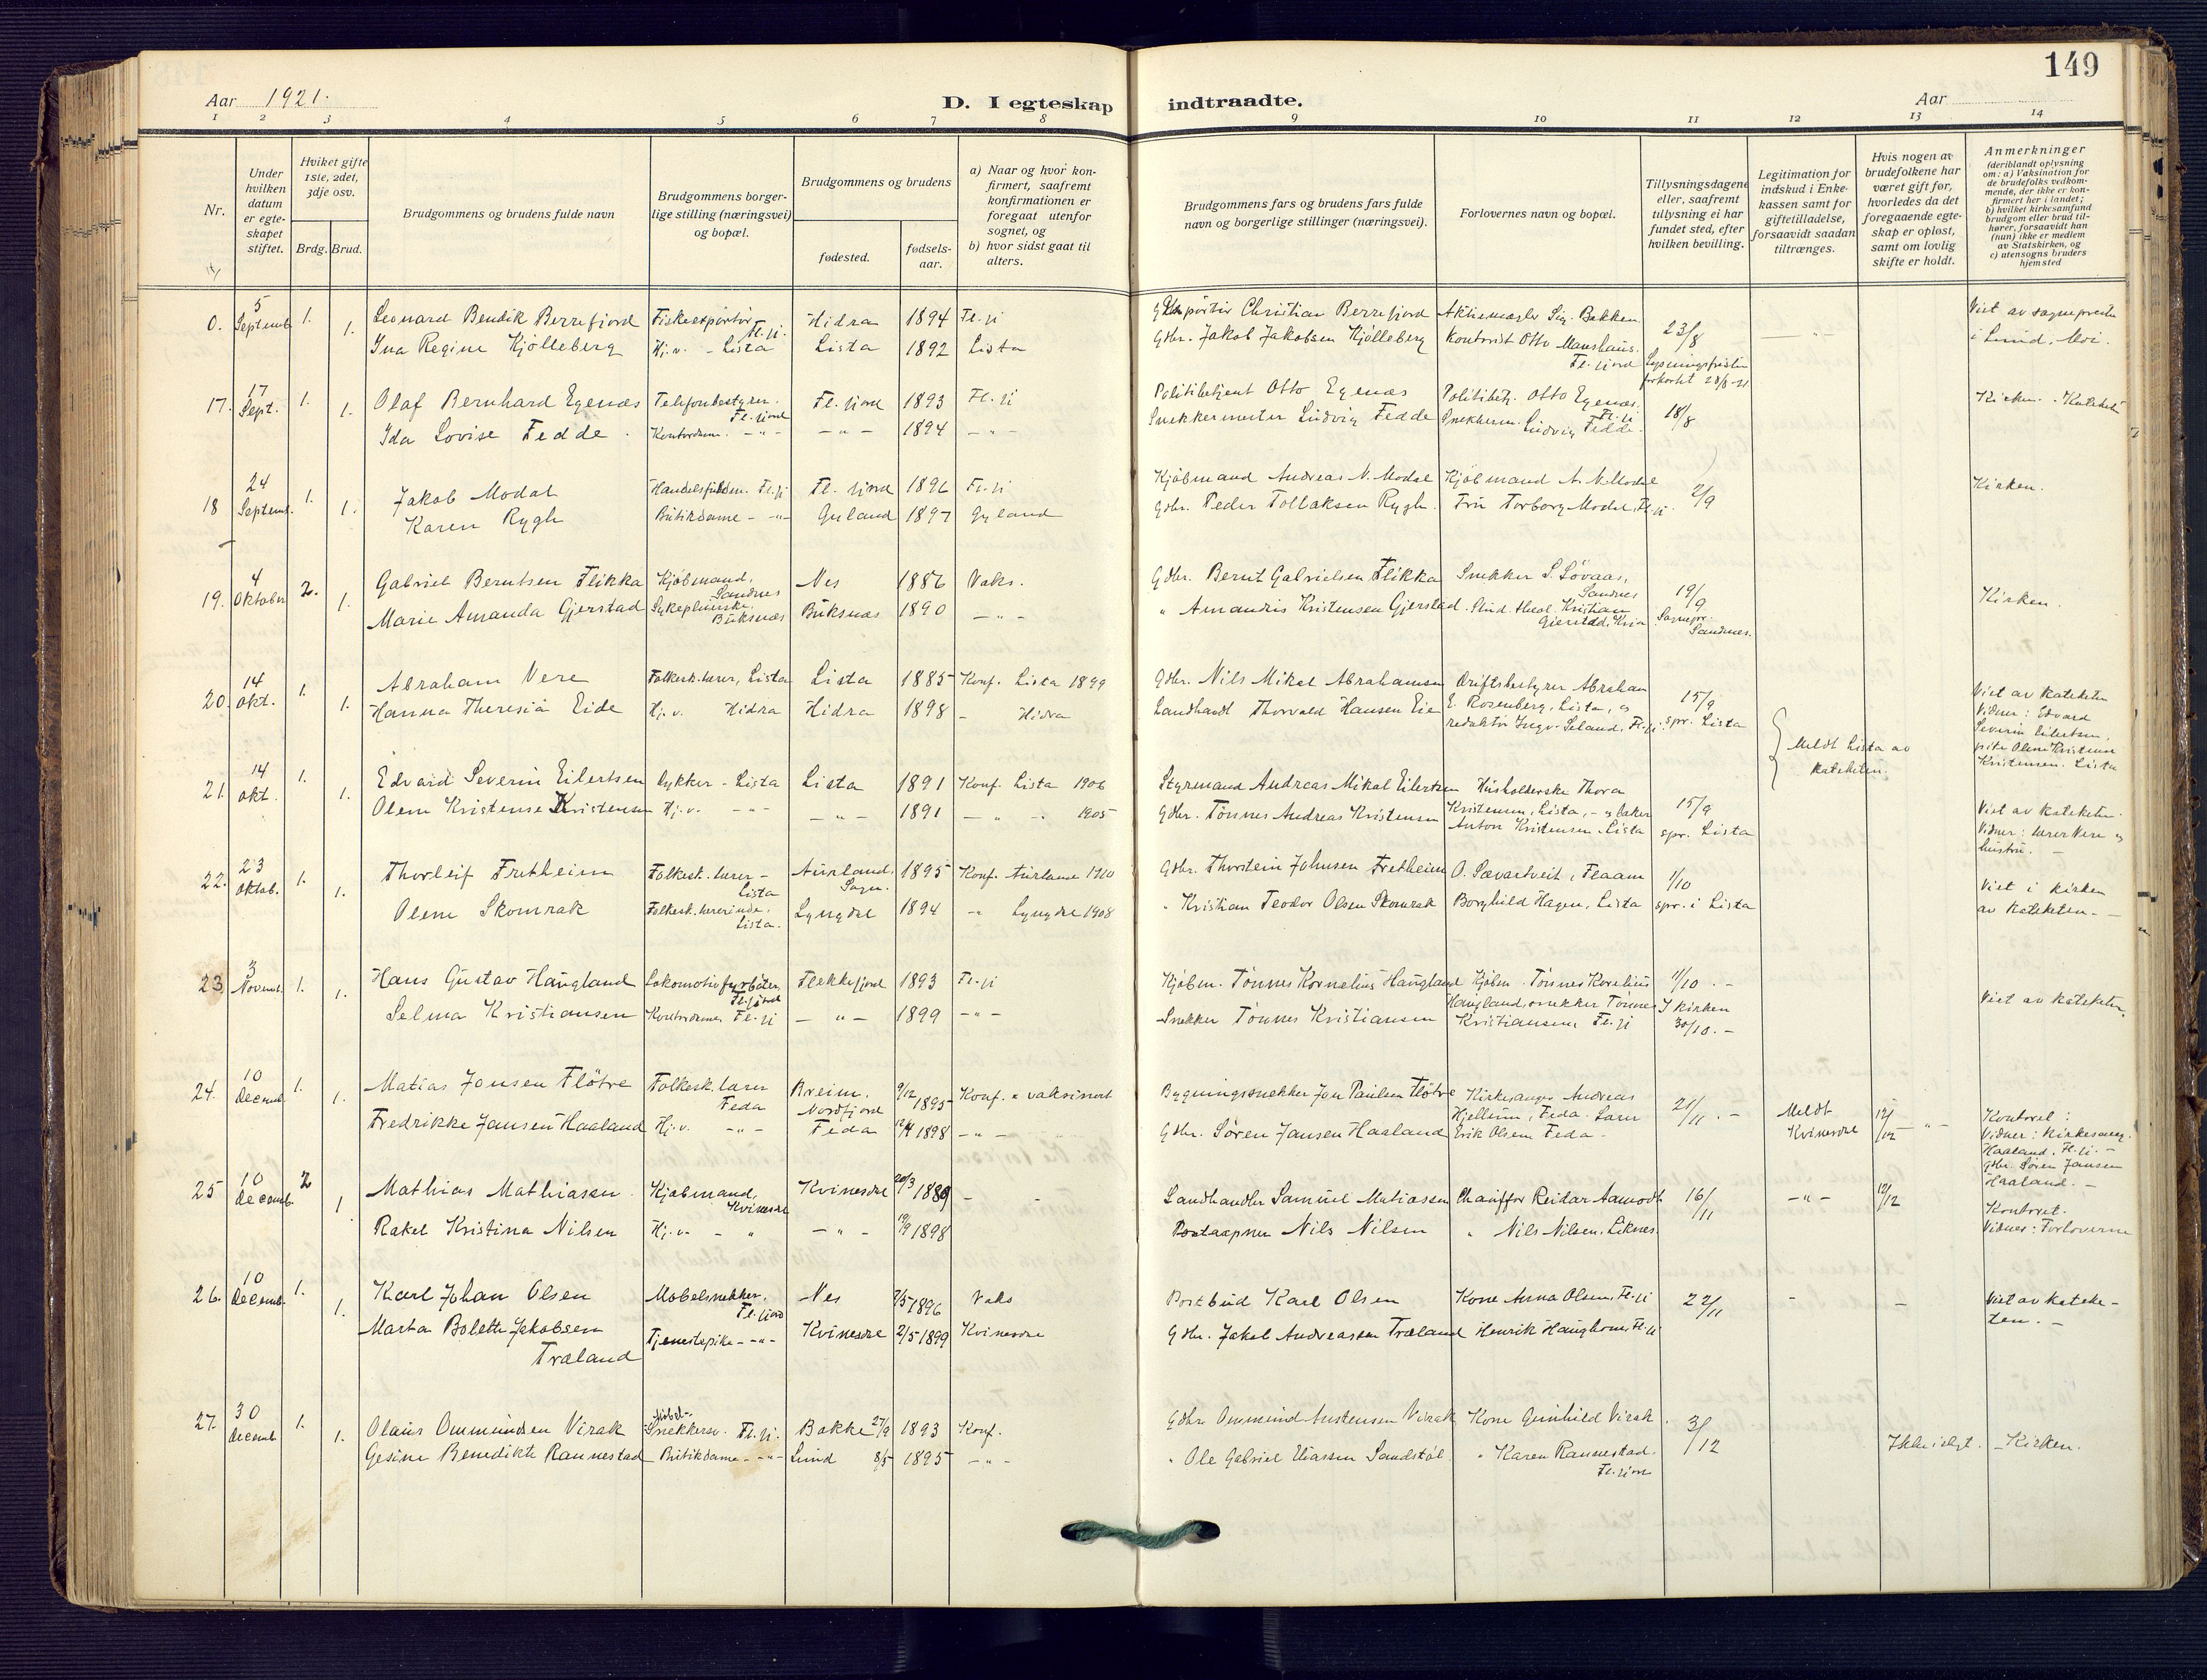 149
Aar 1921.
D. I egteskap indtraadte.
Aar
1 2 3 4 5 6 7 8 9 10 11 12 13 14
Nr.
Under hvilken datum er egteskapet stiftet.
Hvilket gifte 1ste, 2det, 3dje osv.
Brdg. Brud.
Brudgommens og brudens fulde navn
Brudgommens borgerlige stilling (næringsvei) og bopæl.
Brudgommens og brudens
fødested.
fødselsaar.
a) Naar og hvor konfirmert, saafremt konfirmationen er foregaat utenfor sognet, og
b) hvor sidst gaat til alters.
Brudgommens fars og brudens fars fulde navn og borgerlige stillinger (næringsvei).
Forlovernes navn og bopæl.
Tillysningsdagene eller, saafremt tillysning ei har fundet sted, efter hvilken bevilling.
Legitimation for indskud i Enkekassen samt for giftetilladelse, forsaavidt saadan tiltrænges.
Hvis nogen av brudefolkene har været gift før, hvorledes da det foregaaende egteskap er opløst, samt om lovlig skifte er holdt.
Anmerkninger (deriblandt oplysning om: a) Vaksination for de brudefolks vedkommende, der ikke er konfirmert her i landet; b) hvilket kirkesamfund brudgom eller brud tilhører, forsaavidt han (hun) ikke er medlem av Statskirken, og c) utensogns bruders hjemsted
0. 5 Septemb 1. Leonard Bendik Berrefjord Fiskeexportør Fl.fj. Hidra 1894 Fl.fj Christian Berrefjord Sig. Bakken 23/8 Viet av sognepresten
1. Ina Regine Kjølleberg Hj.v. - Lista Lista 1892 Lista Gdbr. Jakob Jakobsen Kjølleberg Kontorist Otto Monshaus. Fl.fjord Lysningsfristen forkortet i Lund. Moi.
17. 17 Sept. 1. Olaf Bernhard Egenæs Telefonbestyrer. Fl.fjord Fl.fjord 1893 Fl.fj Politibetjent Otto Egenæs Politibetj. Otto Egenæs, Fl.fj 18/8 Kirken. Kateketen
1. Ida Lovise Fedde. Kontordame. -"- -"- 1894 -"- Snekkermester Ludvig Fedde Snekkerm. Ludvig Fedde.
18 24 Septemb. 1. Jakob Modal Fl.fj Fl.fjord 1896 Fl.fj Kjøbmand Andreas N. Modal Kjøbmand A. N. Modal 2/9 Kirken.
1. Karen Rygh Butikdame -"- Gyland 1897 Gyland Gdbr. Peder Tollaksen Rygh. Fru Torborg Modal, Fl.fj.
19. 4 Oktober 2. Gabriel Berntsen Flikka Kjøbmand, Sandnes Nes 1886 Vaks. Gdbr. Bernt Gabrielsen Flikka Snekker S. Løvaas, Sandnes 19/9 Kirken.
1. Marie Amanda Gjerstad Sykepleierske. Buksnæs Buksnæs 1890 -"- " Kristensen Gjerstad. Stud. theol. Kristian Gjerstad, Kria Sognepr. Sandnes.
20. 14 Okt. 1. Abraham Vere Folkesk.lærer, Lista Lista 1885 Konf. Lista 1899 Gdbr. Nils Mikal Abrahamsen Driftsbestyrer Abraham 15/9 Viet av kateketen
1. Hanna Theresia Eide Hj.v. Hidra Hidra 1898 - Hidra Landhandl Thorvald Hansen Eie E. Rosenberg, Lista, og redaktør Ingv. Seland, Fl.fj. spr. Lista Vidner: Edvard Severin Eilertsen, pike Olene Kristense Kristensen. Lista
Meldt Lista av kateketen.
21. 14 Okt. 1. Edvard Severin Eilertsen Lykker - Lista Lista 1891 Konf. Lista 1906 Styrmand Andreas Mikal Eilertsen Husholderske Thora 15/9 Viet av kateketen.
1. Olene Kristense Kristensen Hj.v. -"- -"- 1891 -"- 1905 Gdbr. Tønnes Andreas Kristensen Kristensen, Lista, - og baker Anton Kristensen, Lista spr. Lista Vidner: lærer Vere og hustru. -
22. 23 Oktob. 1. Thorleif Fretheim Folkesk. lærer - Lista Aurland. Sogn. 1895 Konf. Aurland 1910 Gdbr. Thorstein Johnsen Fretheim O. Sævartveit, Flaam 1/10 Viet i kirken
1. Olene Skomrak Folkesk.lærerinde. Lista. Lyngdal 1894 -"- Lyngdal 1908 " Kristian Teodor Olsen Skomrak Borghild Hagen, Lista spr. i Lista av kateketen. -
23 3 Novemb. 1. Hans Gustav Haugland Lokomotivfyrbøter, Fl.fjord Flekkefjord 1893 Fl.fj Kjøbm. Tønnes Kornelius Haugland Kjøbm. Tønnes Kornelius 11/10. - Viet av kateketen.
1. Selma Kristiansen Kontordame, Fl.fj -"- 1899 -"- Snekker Tønnes Kristiansen Haugland, snekker Tønnes Kristiansen, Fl.fj I kirken 30/10. -
24. 10 Decemb. 1. Matias Jonsen Fløtre Folkesk.lærer Feda Breim. Nordfjord 9/12 1895 Konf. & vaksinert Bygningssnekker Jon Paulsen Fløtre Kirkesanger Andreas 21/11. - Meldt Kvinesdal 12/12 -"- Kontoret:
1. Fredrikke Jansen Haaland Hj.v. -"- Feda 1898 -"- Gdbr. Søren Jansen Haaland Hjellum, Feda. Erik Olsen Feda - Vidner: Kirkesang. Haaland, Fl.fj. - gdbr. Søren Jansen Haaland. -
25 10 Decemb. 2 Mathias Mathiassen. Kjøbmand, Kvinesdal Kvinesdal 20/3 1889 - Landhandler Samuel Matiassen Chauffør Reidar Aamodt 16/11 -"- 12/12 Kontoret.
1 Rakel Kristina Nilsen Hj.v. - " -"- 19/9 1898 Postaapner Nils Nilsen " Nils Nilsen, Liknes. Vidner: Forloverne
26. 10 Decemb. 1. Karl Johan Olsen Møbelsnekker. Fl.fjord Nes 2/5 1896 Vaks Postbud Karl Olsen Kone Anna Olsen, Fl.fj 22/11 - - Viet av kateke-
1. Marta Bolette Jakobsen Træland Tjenestepike -"- Kvinesdal 2/5 1899 Kvinesdal Gdbr. Jakob Andreassen Træland Henrik Haughom, Fl.fj ten. -
27. 30 Decemb 1. Olaus Ommundsen Virak Møbel-Snekkersv. Fl.fj. Bakke 27/9 1893 Konf. Gdbr Ommund Austensen Virak Kone Gunhild Virak. 3/12 Ikke i slegt. - Kirken.
1. Gesine Benedikte Rannestad Butikdame -"- Lund 8/5 1895 -"- " Ole Gabriel Eliassen Sandstøl. " Karen Rannestad. Fl.fjord